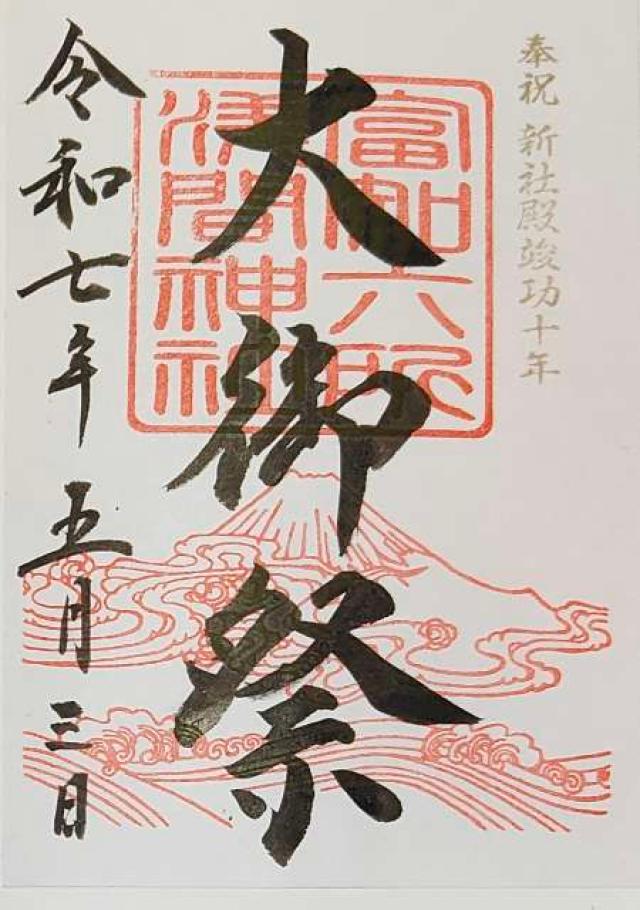 奉祝 新社殿竣功十年
大御祭
富知六所
浅間神社
令和七年五月三日